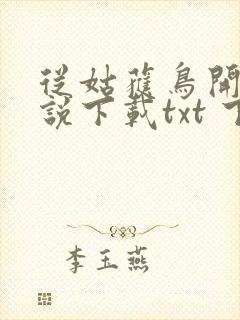 從姑獲鳥開
說下載txt 下
李玉燕